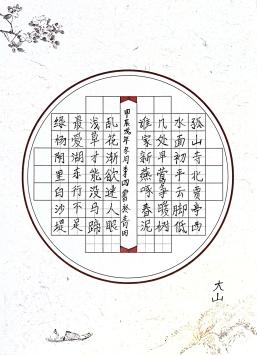 孤山寺北贾亭西
水面初平云脚低
几处早莺争暖树
谁家新燕啄春泥
乱花渐欲迷人眼
浅草才能没马蹄
最爱湖东行不足
绿杨阴里白沙堤
大山